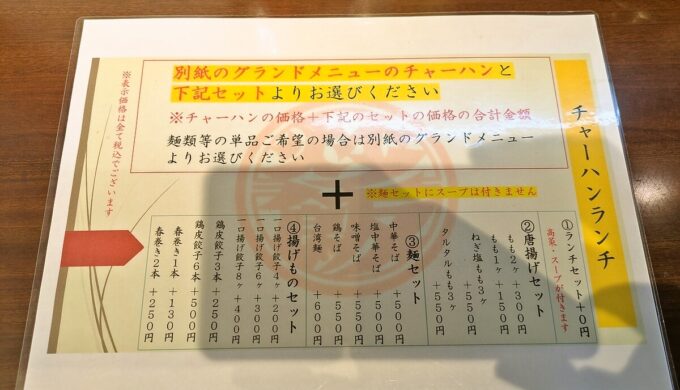 チャーハンランチ
別紙のグランドメニューのチャーハンと
下記セットよりお選びください
※チャーハンの価格+下記のセットの価格の合計金額
麺類等の単品ご希望の場合は別紙のグランドメニュー
よりお選びください
※表示価格は全て税込でございます
+
※麺セットにスープは付きません
①ランチセット+0円
高菜・スープが付きます
②唐揚げセット
もも2ヶ +300円
もも1ヶ +150円
ねぎ塩もも3ヶ
+550円
タルタルもも3ヶ
+550円
③麺セット
中華そば +500円
塩中華そば +500円
味噌そば +550円
鶏そば +550円
台湾麺 +600円
④揚げものセット
一口揚げ餃子4ヶ+200円
一口揚げ餃子6ヶ+300円
一口揚げ餃子8ヶ+400円
鶏皮餃子3本 +250円
鶏皮餃子6本 +500円
春巻き1本 +130円
春巻き2本 +250円